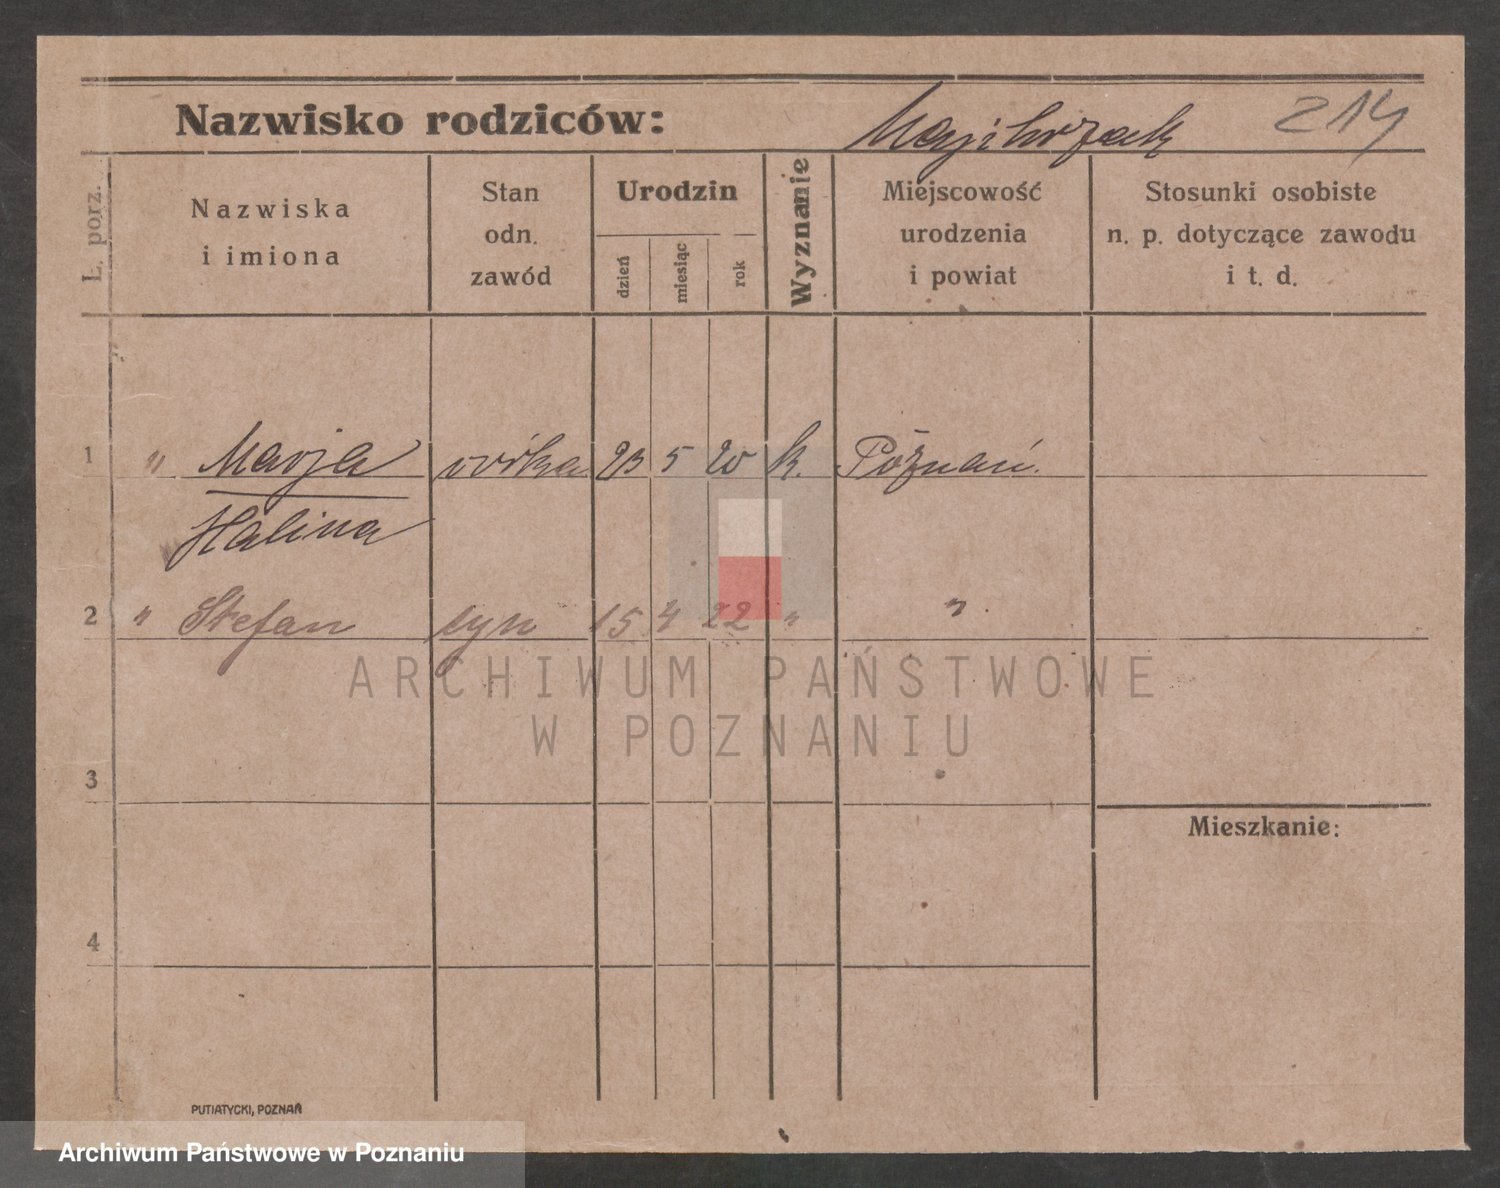 Nazwisko rodziców: Majchrzak 214
L. porz.
Nazwiska
i imiona
Stan
odn.
zawód
Urodzin
dzień
miesiąc
rok
Wyznanie
Miejscowość
urodzenia
i powiat
Stosunki osobiste
n. p. dotyczące zawodu
i t. d.
1 " Marja córka 23 5 20 k. Poznań.
Halina
2 " Stefan syn 15 4 22 " "
ARCHIWUM PAŃSTWOWE
W POZNANIU
3
Mieszkanie:
4
PUTIATYCKI, POZNAŃ
Archiwum Państwowe w Poznaniu